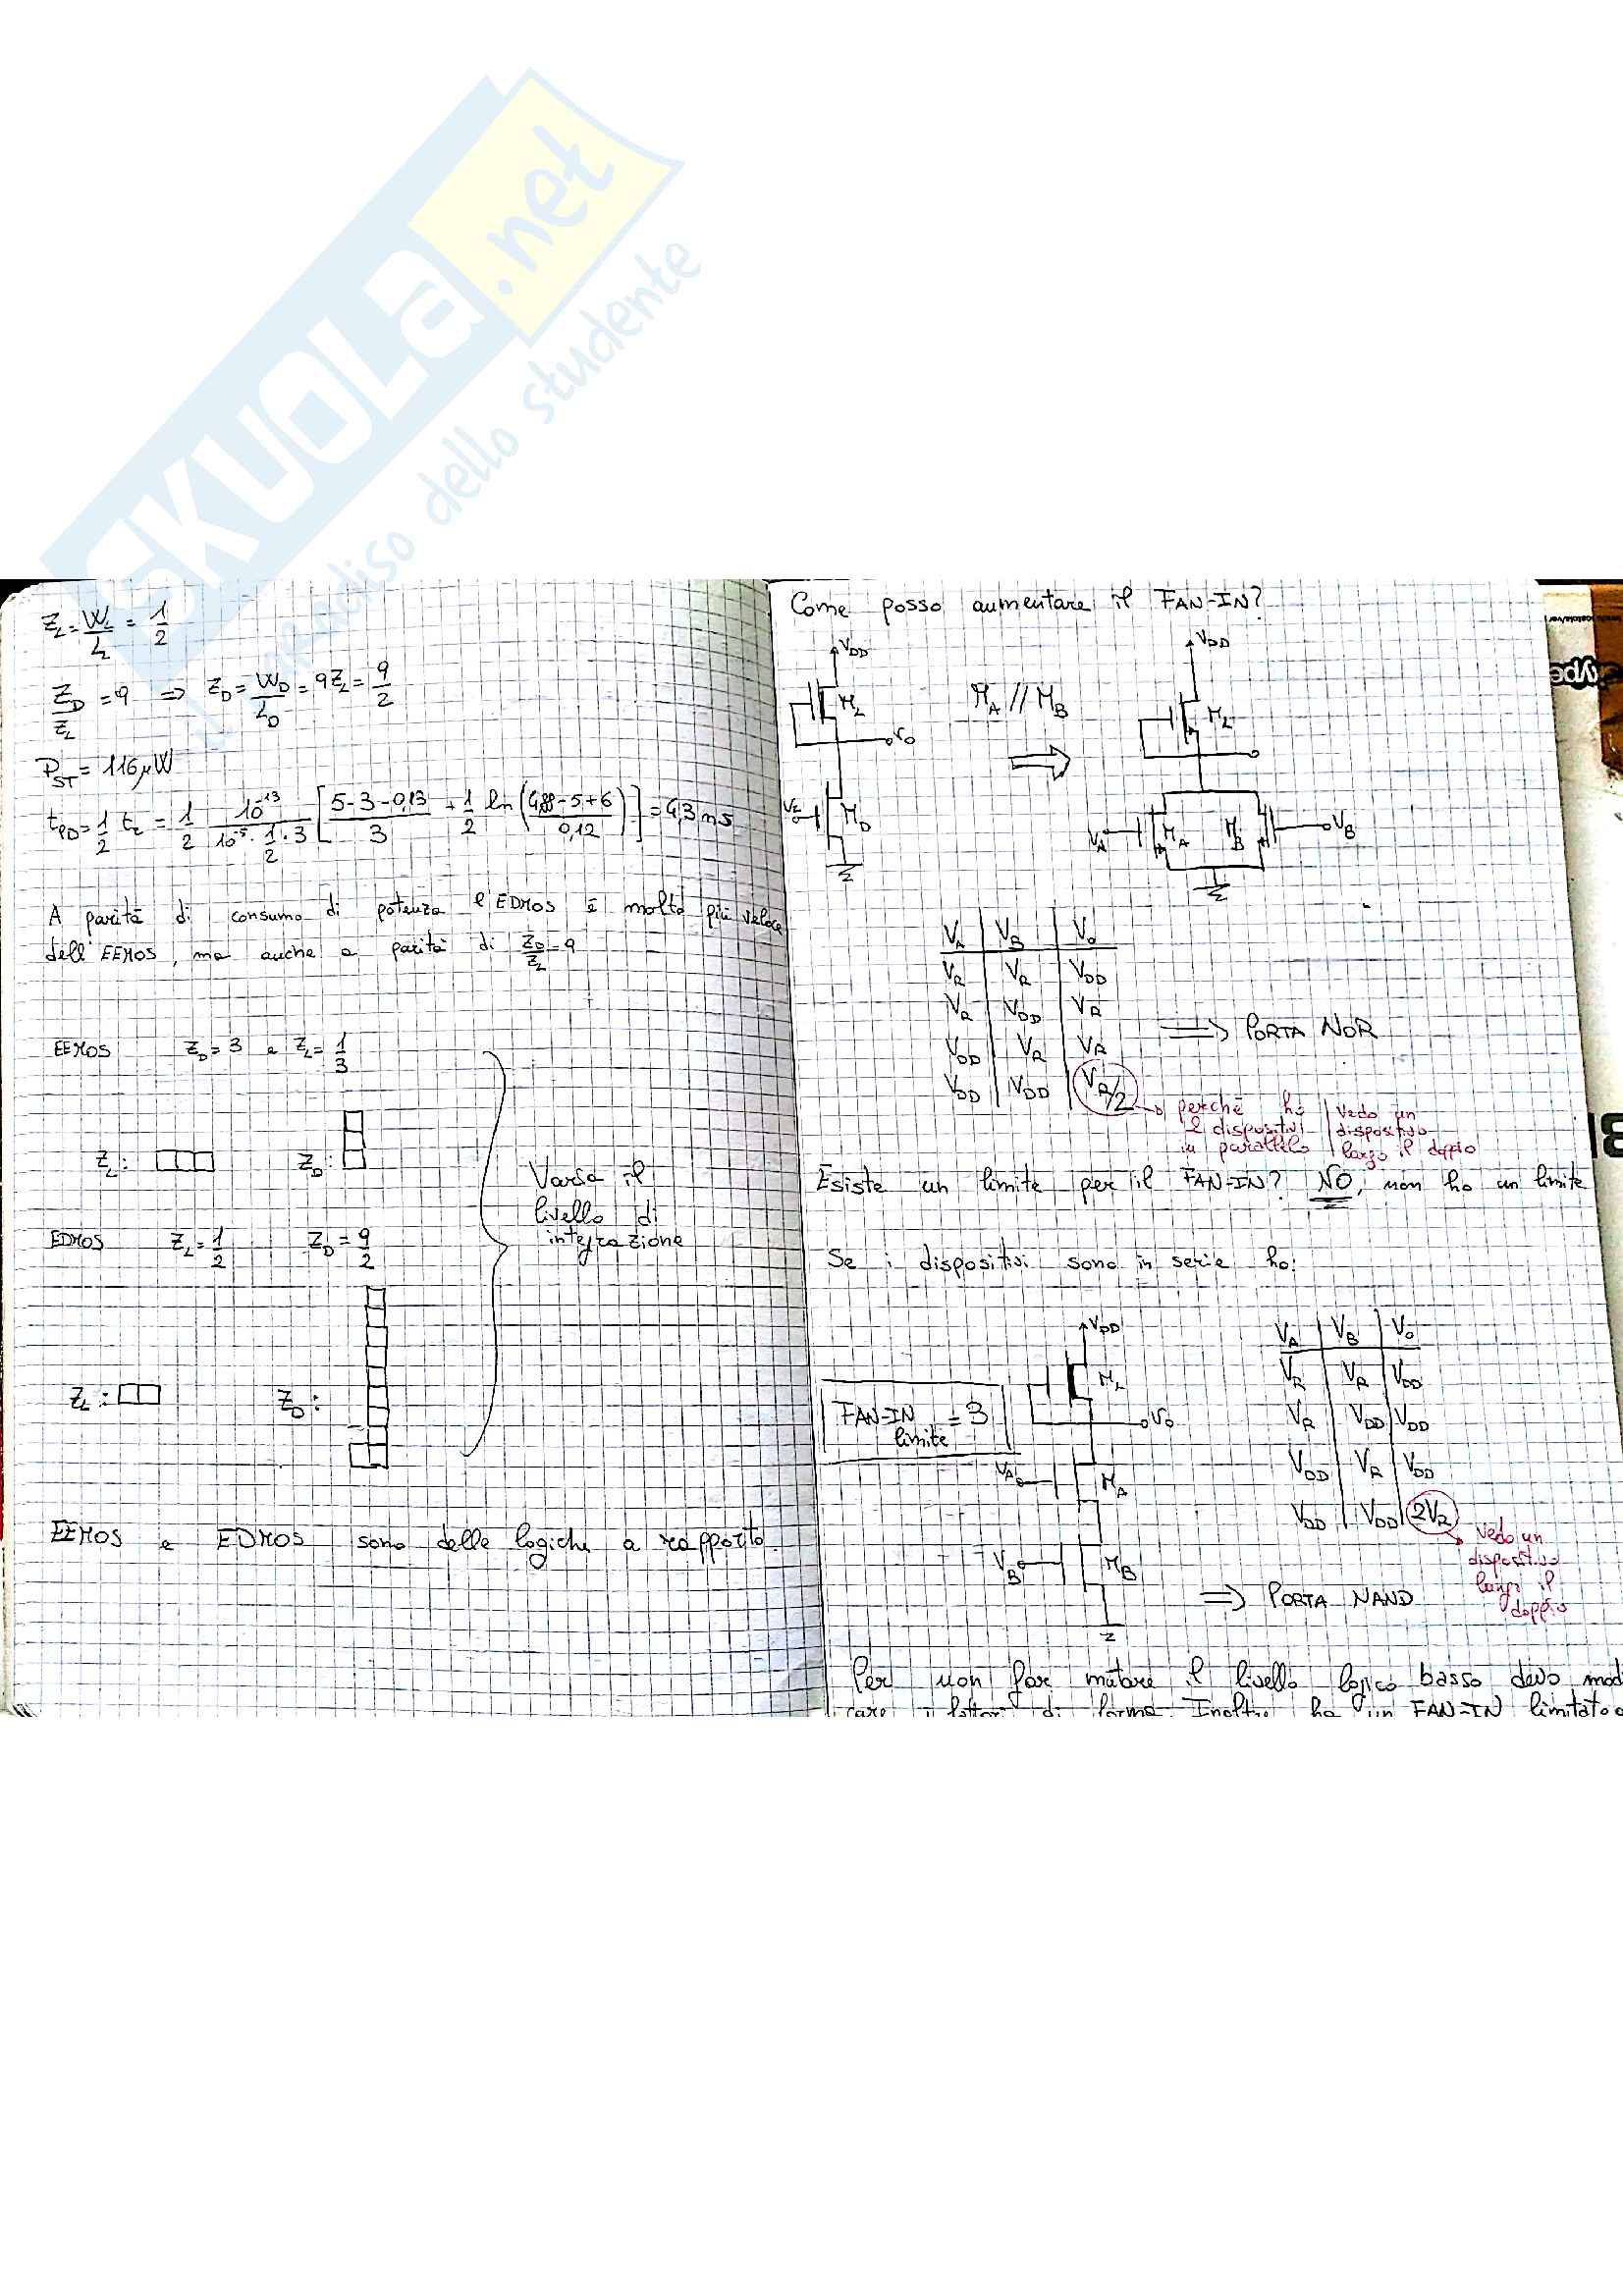 SKUOLA.net
paradiso dello studente
Z_L = W_L/L_L = 1/2
Z_D/Z_L = 9 ⇒ Z_D = W_D/L_D = 9Z_L = 9/2
P_ST = 116 μW
t_PD = 1/2 t_r = 1/2 10^-13/(10^-5 · 1/2 · 3) [(5-3-0,13)/3 + 1/2 ln((4,88-5+6)/0,12)] = 4,3 ns
A parità di consumo di potenza l'EDMOS è molto più veloce
dell'EEMOS, ma anche a parità di Z_D/Z_L = 9
EEMOS Z_D = 3 e Z_L = 1/3
Z_L: Z_D:
Varia il
livello di
integrazione
EDMOS Z_L = 1/2 Z_D = 9/2
Z_L: Z_D:
EEMOS e EDMOS sono delle logiche a rapporto
Come posso aumentare il FAN-IN?
V_DD
M_L
V_o
V_I
M_D
M_A // M_B
⇒
V_DD
M_L
V_A M_A M_B V_B
V_A V_B V_o
V_R V_R V_DD
V_R V_DD V_R
V_DD V_R V_R
V_DD V_DD V_R/2
⇒ PORTA NOR
perché ho
2 dispositivi
in parallelo
vedo un
dispositivo
largo il doppio
Esiste un limite per il FAN-IN? NO, non ho un limite
Se i dispositivi sono in serie ho:
FAN-IN limite = 3
V_DD
M_L
V_o
V_A M_A
V_B M_B
V_A V_B V_o
V_R V_R V_DD
V_R V_DD V_DD
V_DD V_R V_DD
V_DD V_DD 2V_R
vedo un
dispositivo
lungo il
doppio
⇒ PORTA NAND
Per non far mutare il livello logico basso devo
fattori di forma. Inoltre ho un FAN-IN limitato